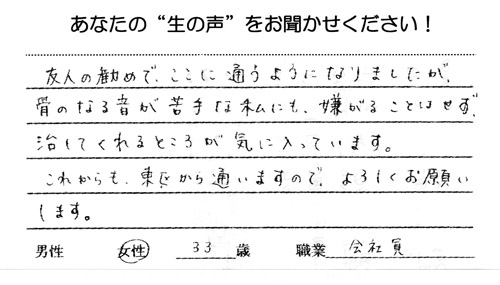 あなたの“生の声”をお聞かせください！
友人の勧めで、ここに通うようになりましたが、
骨のなる音が苦手な私にも、嫌がることはせず、
治してくれるところが気に入っています。
これからも、東区から通いますので、よろしくお願い
します。
男性 女性 33歳 職業 会社員